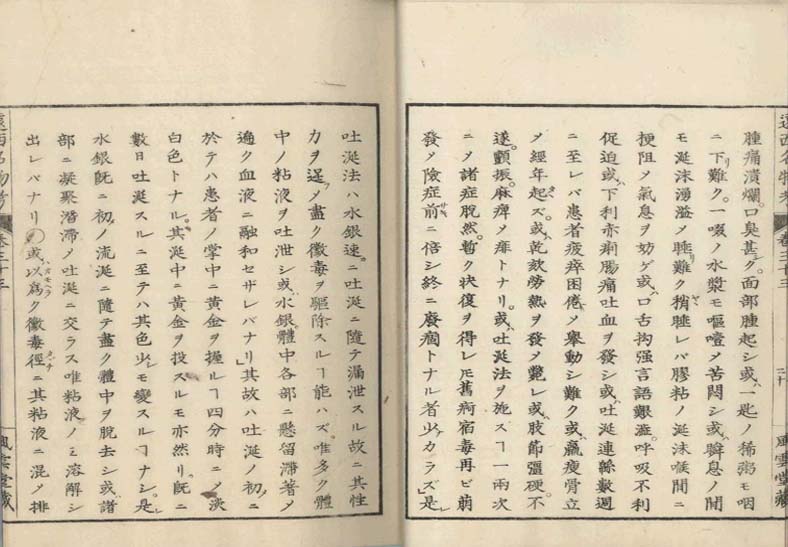 遠西名物考
卷三十三
三十
風雲堂藏
腫痛潰爛。口臭甚ク。面部腫起シ或ハ一匙ノ稀粥モ咽
ニ下リ難ク。一啜ノ水漿モ嘔噎シテ苦悶シ或ハ瞬息ノ間
モ涎沫湧溢シテ睡リ難ク稍睡レバ膠粘ノ涎沫喉間ニ
梗阻シテ氣息ヲ妨ゲ或ハ口舌拘强言語艱澁。呼吸不利
促迫或ハ下利赤痢腸痛吐血ヲ發シ或ハ吐涎連緜數週
ニ至レバ患者疲瘁困倦シテ擧動シ難ク或ハ羸瘦骨立
シテ經年起ズ。或ハ乾欬勞熱ヲ發シテ斃レ或ハ肢節彊硬。不
遂。顫振。麻痺シテ痱トナリ。或ハ吐涎法ヲ施スヿ一兩次
ニシテ諸症脫然。暫ク狀復ヲ得レ𪜈舊痾宿毒再ビ萠
發シテ險症前ニ倍シ終ニ廢痼トナル者少カラズ」是レ
吐涎法ハ水銀速ニ吐涎ニ隨テ漏泄スル故ニ其性
力ヲ逞シテ盡ク黴毒ヲ驅除スルヿ能ハズ。唯多ク體
中ノ粘液ヲ吐泄シ或ハ水銀體中各部ニ懸留滯著シテ
遍ク血液ニ融和セザレバナリ」其故ハ吐涎ノ初ニ
於テハ患者ノ掌中ニ黃金ヲ握ルヿ四分時ニシテ淡
白色トナル。其涎中ニ黃金ヲ投スルモ亦然リ。旣ニ
數日吐涎スルニ至テハ其色少シモ變スルヿナシ。是レ
水銀旣ニ初ノ流涎ニ隨テ盡ク體中ヲ脫去シ或ハ諸
部ニ凝聚潛滯シテ吐涎ニ交ラス唯粘液ノミ溶解シ
出レバナリ〇或ハ以爲ク黴毒徑ニ其粘液ニ混シテ排
遠西名物考
卷三十三
風雲堂藏